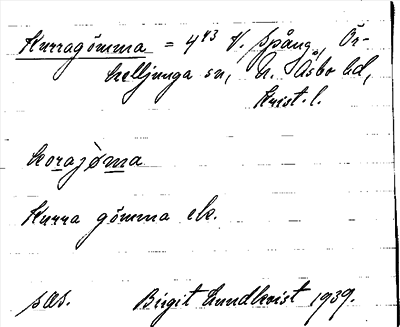 Kurragömma = 4⁴43 V. Spång, Ör-
kelljunga sn, N. Åsbo hd,
Krist. l.
korajòma
Kurra gömma etc.
sas. Birgit Lundkvist 1939.